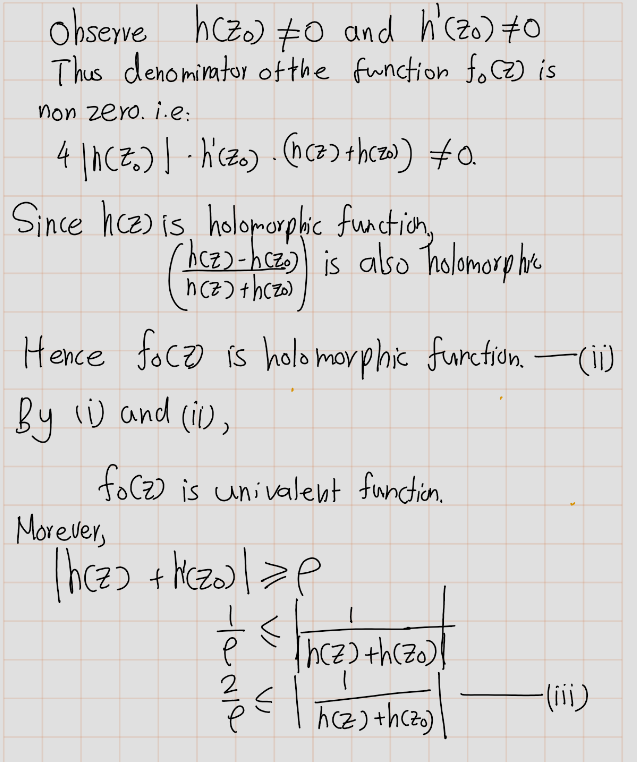 Observe h(z₀) ≠ 0 and h'(z₀) ≠ 0
Thus denominator of the function f₀(z) is
non zero. i.e:
4 |h(z₀)| · h'(z₀) · (h(z) + h(z₀)) ≠ 0.
Since h(z) is holomorphic function,
((h(z) - h(z₀))/(h(z) + h(z₀))) is also holomorphic
Hence f₀(z) is holomorphic function. — (ii)
By (i) and (ii),
f₀(z) is univalent function.
Morever,
|h(z) + h'(z₀)| ⩾ ρ
1/ρ ⩽ |1/|h(z) + h(z₀)||
2/ρ ⩽ |1/(h(z) + h(z₀))| — (iii)